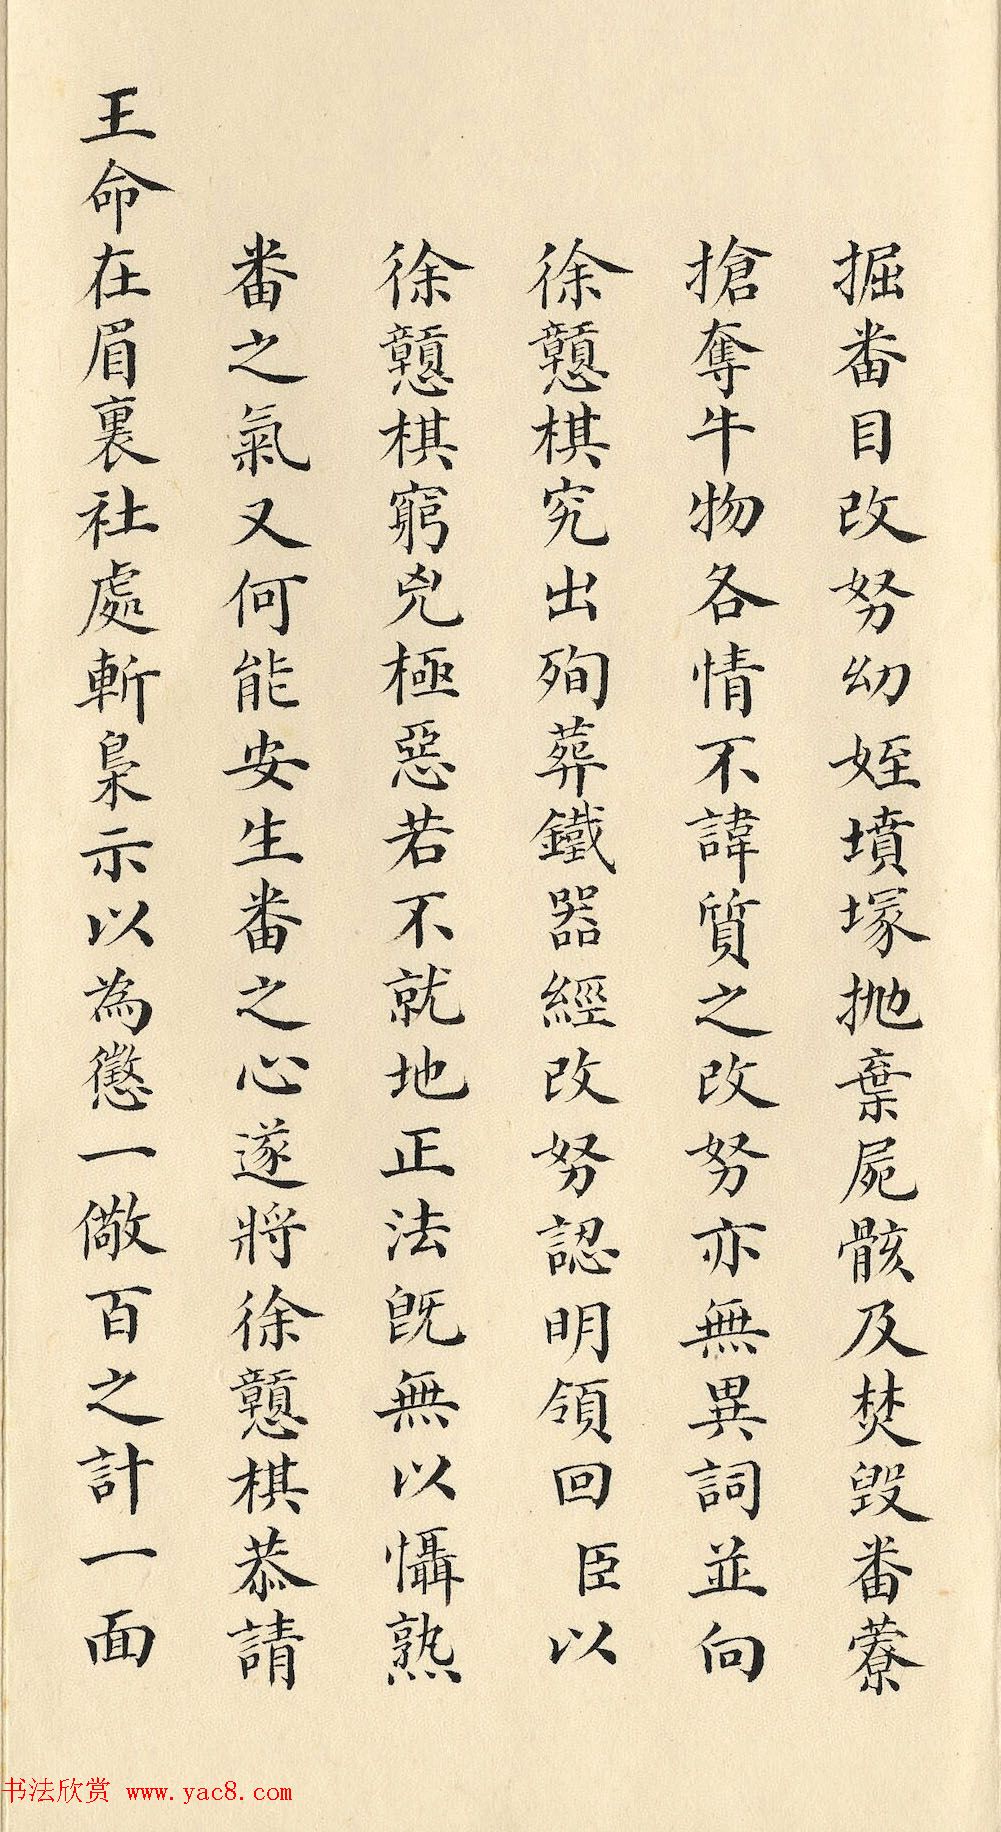 掘番目改努幼姪墳塚拋棄屍骸及焚毀番藔
搶奪牛物各情不諱質之改努亦無異詞並向
徐戇棋究出殉葬鐵器經改努認明領回臣以
徐戇棋窮兇極惡若不就地正法旣無以懾熟
番之氣又何能安生番之心遂將徐戇棋恭請
王命在眉裏社處斬梟示以為懲一儆百之計一面
书法欣赏 www.yac8.com